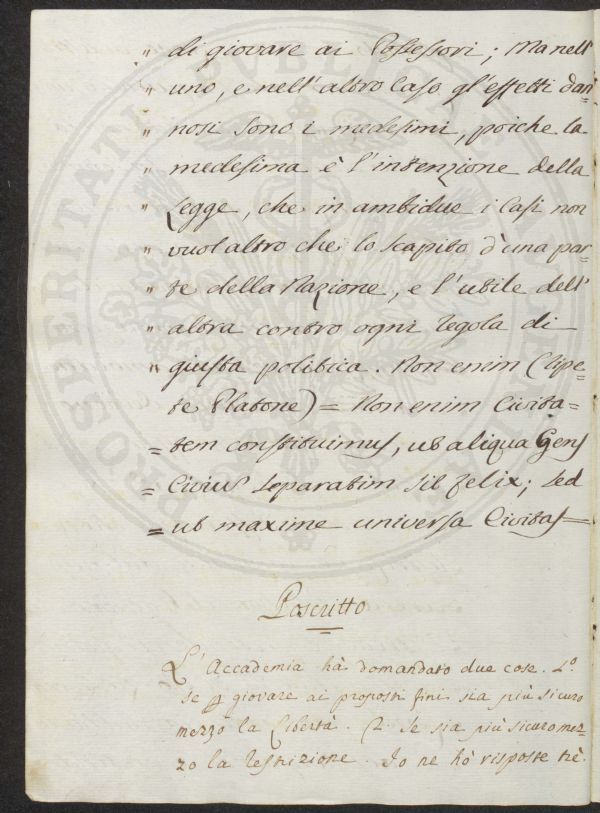 „ di giovare ai Possessori; Ma nell'
„ uno, e nell'altro Caso gl'effetti dan-
„ nosi sono i medesimi, poiche la
„ medesima è l'intenzione della
„ Legge, che in ambidue i Casi non
„ vuol altro che lo scapito d'una par-
„ te della Nazione, e l'utile dell'
„ altra contro ogni regola di
„ giusta politica. Non enim (ripe-
te Platone) = Non enim Civita-
= tem constituimus, ut aliqua Gens
= Civius separatim sit felix; sed
= ut maxime universa Civitas =
Poscritto
L'Accademia hà domandato due cose. 1.º
Se p giovare ai proposti fini sia più sicuro
mezzo la Libertà. 2. Se sia più sicuro mez-
zo la restrizione. Io ne hò risposte trè.
PROSPERITATI PVBLICAE